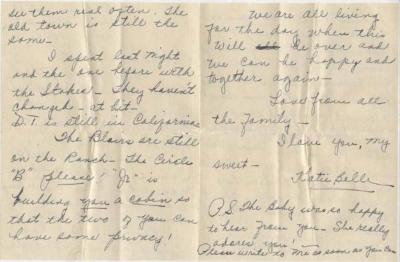 see them real often. The
old town is still the
same—
I spent last night
and the one before with
the Stokes— They haven't
changed— at bit—
D.T. is still in California
The Blairs are still
on the Ranch— The Circle
"B" please! "Jr" is
building you a cabin so
that the two of you can
have some privacy!
We are all living
for the day when this
will be over and
we can be happy and
together again—
Love from all
the family—
I love you, my
sweet—
Katie Belle
P.S. The Baby was so happy
to hear from you— She really
adores you!—
Please write to me as soon as you can